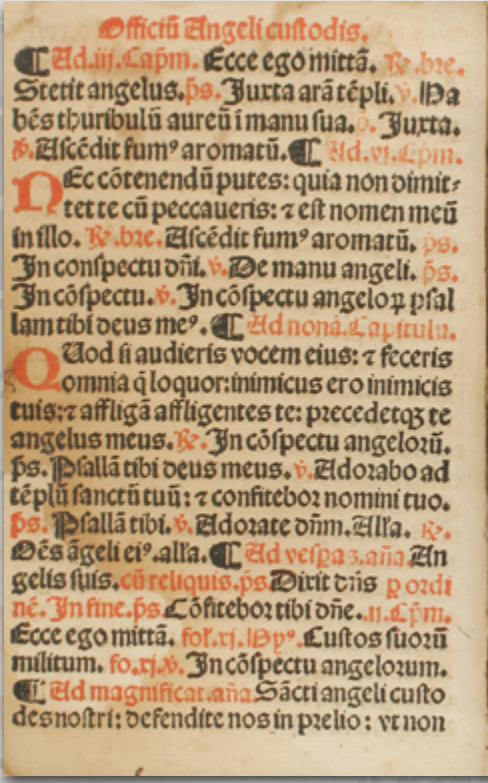 Officiũ Angeli custodis.
¶ Ad.iij.Capm̃. Ecce ego mittã. ℞.bre.
Stetit angelus.p̃s. Juxta arã tẽpli.℣. Ha
bẽs thuribulũ aureũ ĩ manu sua. p̃. Juxta.
℣. Ascẽdit fumꝰ aromatũ. ¶ Ad.vj.Cpm̃.
NEc cõtenendũ putes: quia non dimit⸗
tet te cũ peccaueris: ⁊ est nomen meũ
in illo. ℞.bre. Ascẽdit fumꝰ aromatũ. p̃s.
In conspectu dñi.℣. De manu angeli. p̃s.
In cõspectu.℣. In cõspectu angeloꝝ psal
lam tibi deus meꝰ. ¶ Ad nonã.Capitulũ.
QUod si audieris vocem eius: ⁊ feceris
omnia q̃ loquor: inimicus ero inimicis
tuis: ⁊ affligã affligentes te: precedetqꝫ te
angelus meus. ℞. In cõspectu angelorũ.
p̃s. Psallã tibi deus meus. ℣. Adorabo ad
tẽplũ sanctũ tuũ: ⁊ confitebor nomini tuo.
p̃s. Psallã tibi.℣. Adorate dñm. All'a. ℞.
Oẽs ãgeli eiꝰ.all'a. ¶ Ad vesꝑaꝫ.añã An
gelis suis.cũ reliquis.p̃s Dixit dñs ꝑ ordi
nẽ. In fine.p̃s Cõfitebor tibi dñe..ij.Cpm̃.
Ecce ego mittã. fol.xj. Hyꝰ. Custos suorũ
militum. fo.xj.℣. In cõspectu angelorum.
¶ Ad magnificat.añã. Sãcti angeli custo
des nostri: defendite nos in prelio: vt non